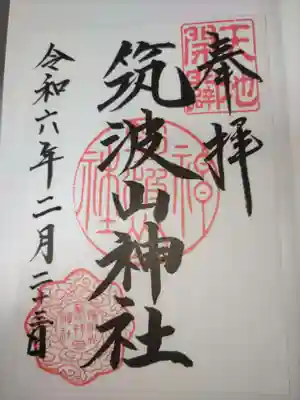 奉拝
天地開闢
筑波山神社
令和六年二月二十三日